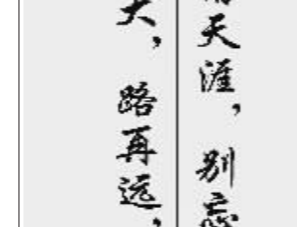 天涯，别忘
大，路再远，